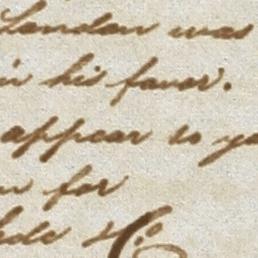 London was
in his favor.
appear to yo
for